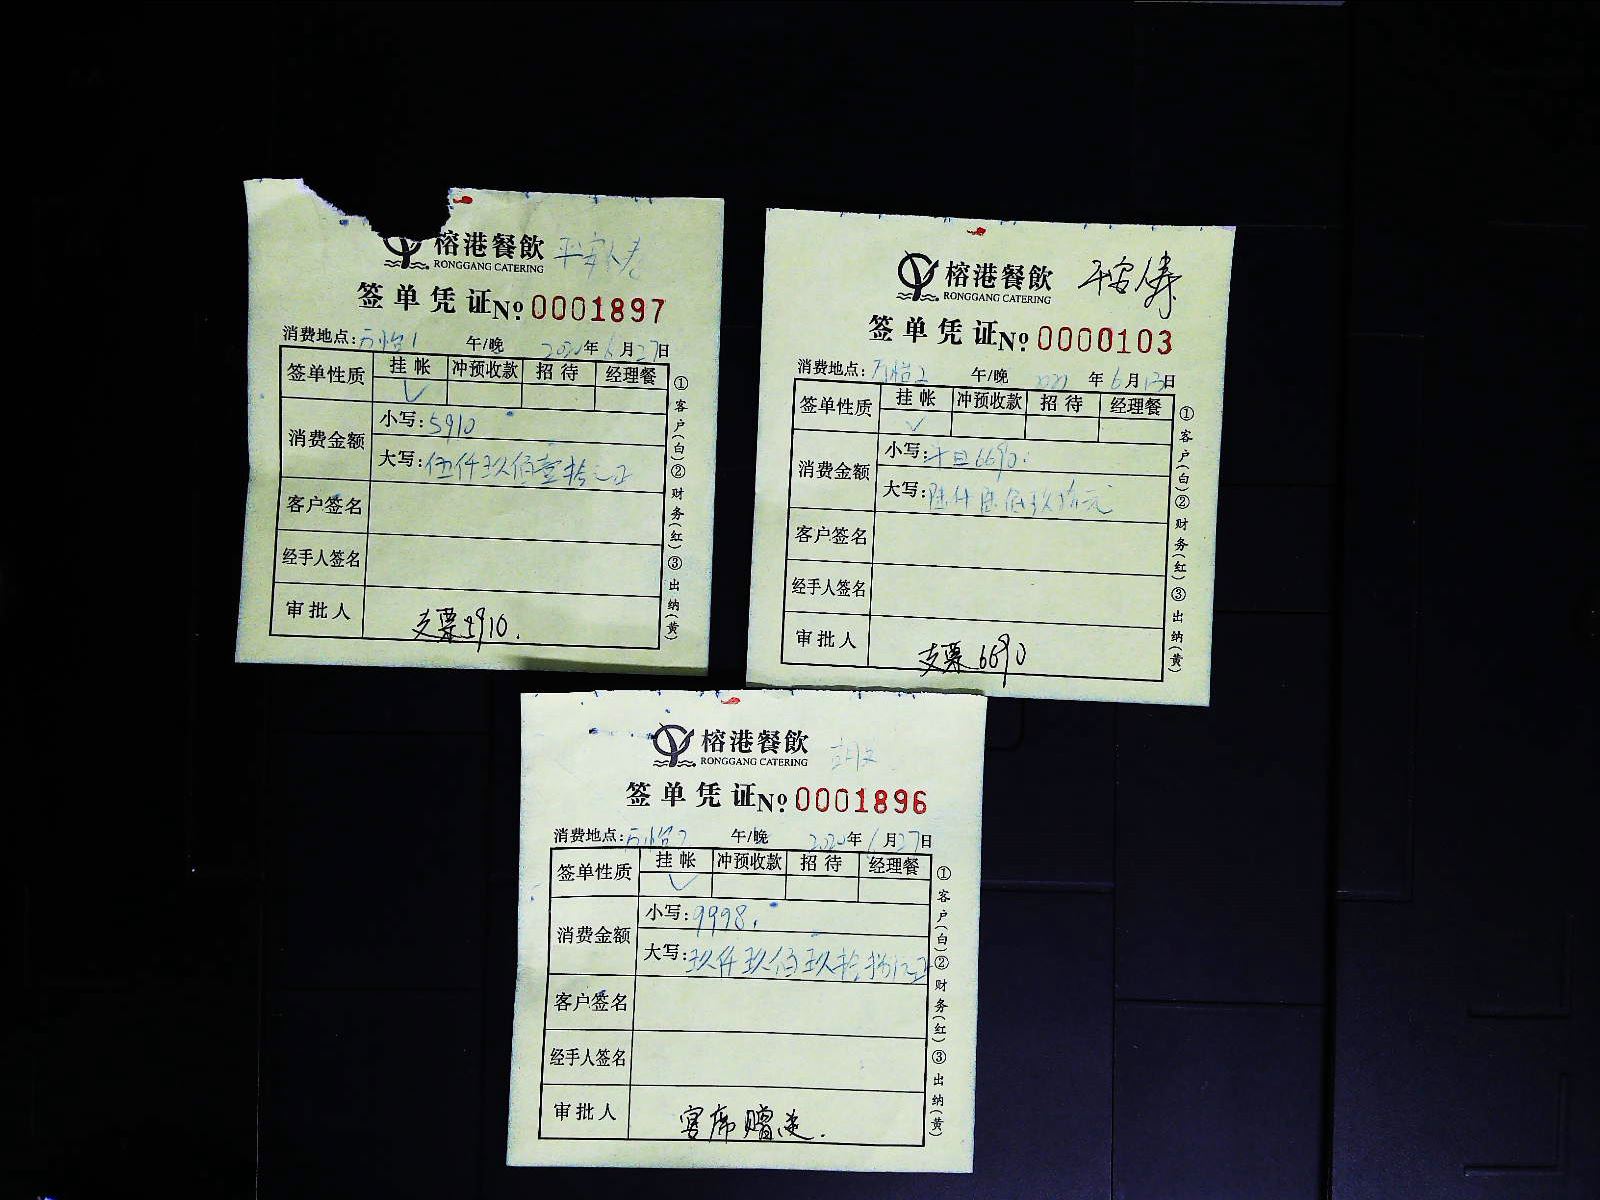 榕港餐飲 平安人寿
RONGGANG CATERING
签单凭证 №0001897
消费地点: 午/晚 2020年6月27日
签单性质 挂帐 冲预收款 招待 经理餐
✓
消费金额 小写:5910
大写:伍仟玖佰壹拾元正
客户签名
经手人签名
审批人 支票5910.
①客户(白)②财务(红)③出纳(黄)
榕港餐飲 平安人寿
RONGGANG CATERING
签单凭证 №0000103
消费地点: 午/晚 年6月13日
签单性质 挂帐 冲预收款 招待 经理餐
✓
消费金额 小写:6690.
大写:陆仟陆佰玖拾元
客户签名
经手人签名
审批人 支票6690
①客户(白)②财务(红)③出纳(黄)
榕港餐飲
RONGGANG CATERING
签单凭证 №0001896
消费地点: 午/晚 2020年6月27日
签单性质 挂帐 冲预收款 招待 经理餐
✓
消费金额 小写:9998.
大写:玖仟玖佰玖拾捌元正
客户签名
经手人签名
审批人 宴席赠送.
①客户(白)②财务(红)③出纳(黄)